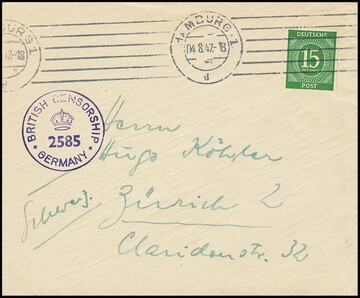 HAMBURG 1
04.8.47.-18
d
DEUTSCHE
15
PFENNIG
POST
BRITISH CENSORSHIP
2585
GERMANY
Herrn
Hugo Köhler
Schweiz.
Zürich 2
Claridenstr. 32